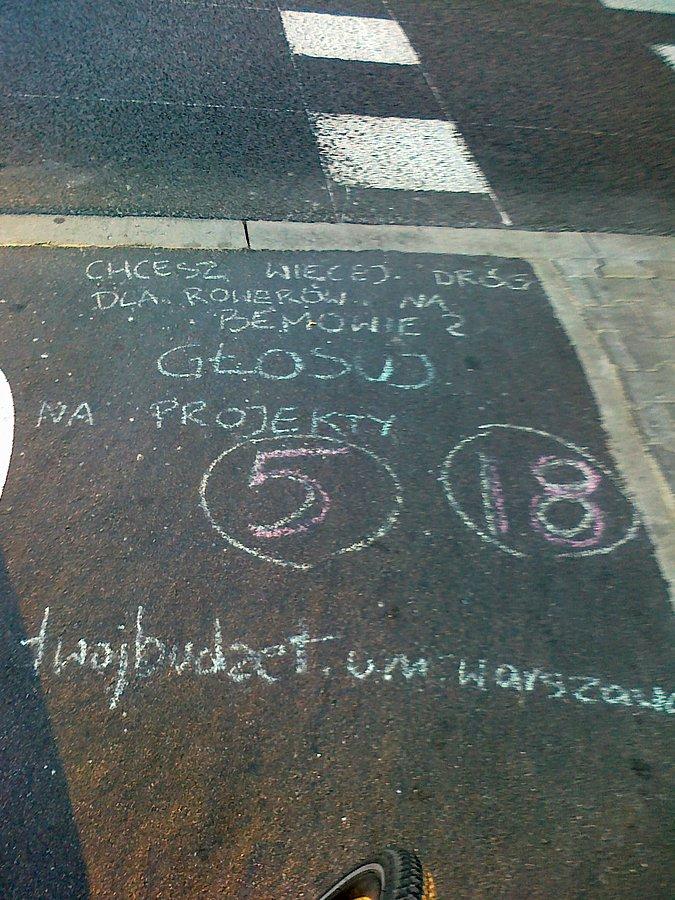 CHCESZ WIĘCEJ DRÓG
DLA ROWERÓW NA
BEMOWIE?
GŁOSUJ
NA PROJEKTY
5 18
twojbudzet.um.warszawa